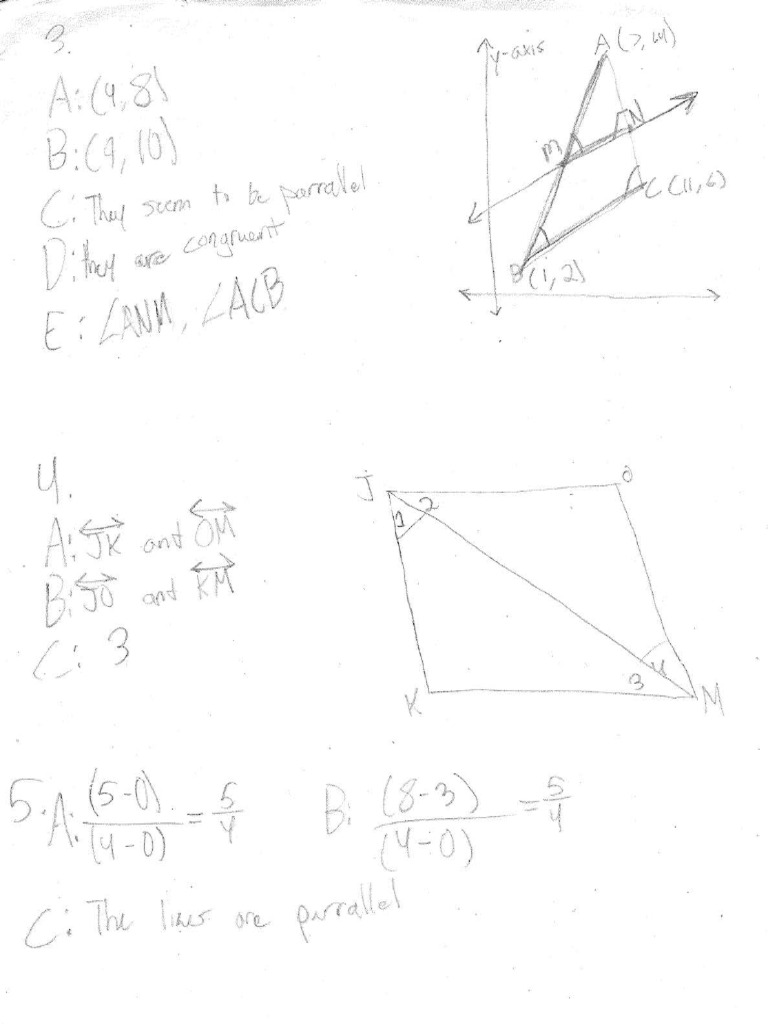 3.
A: (4,8)
B: (9,10)
C: They seem to be parralel
D: they are congruent
E: ∠ANM, ∠ACB
y-axis
A (7,14)
M
N
C (11,6)
B (1,2)
4.
A: JK and OM
B: JO and KM
C: 3
J
O
1
2
3
4
K
M
5. A: (5-0)/(4-0) = 5/4
B: (8-3)/(4-0) = 5/4
C: The lines are parrallel